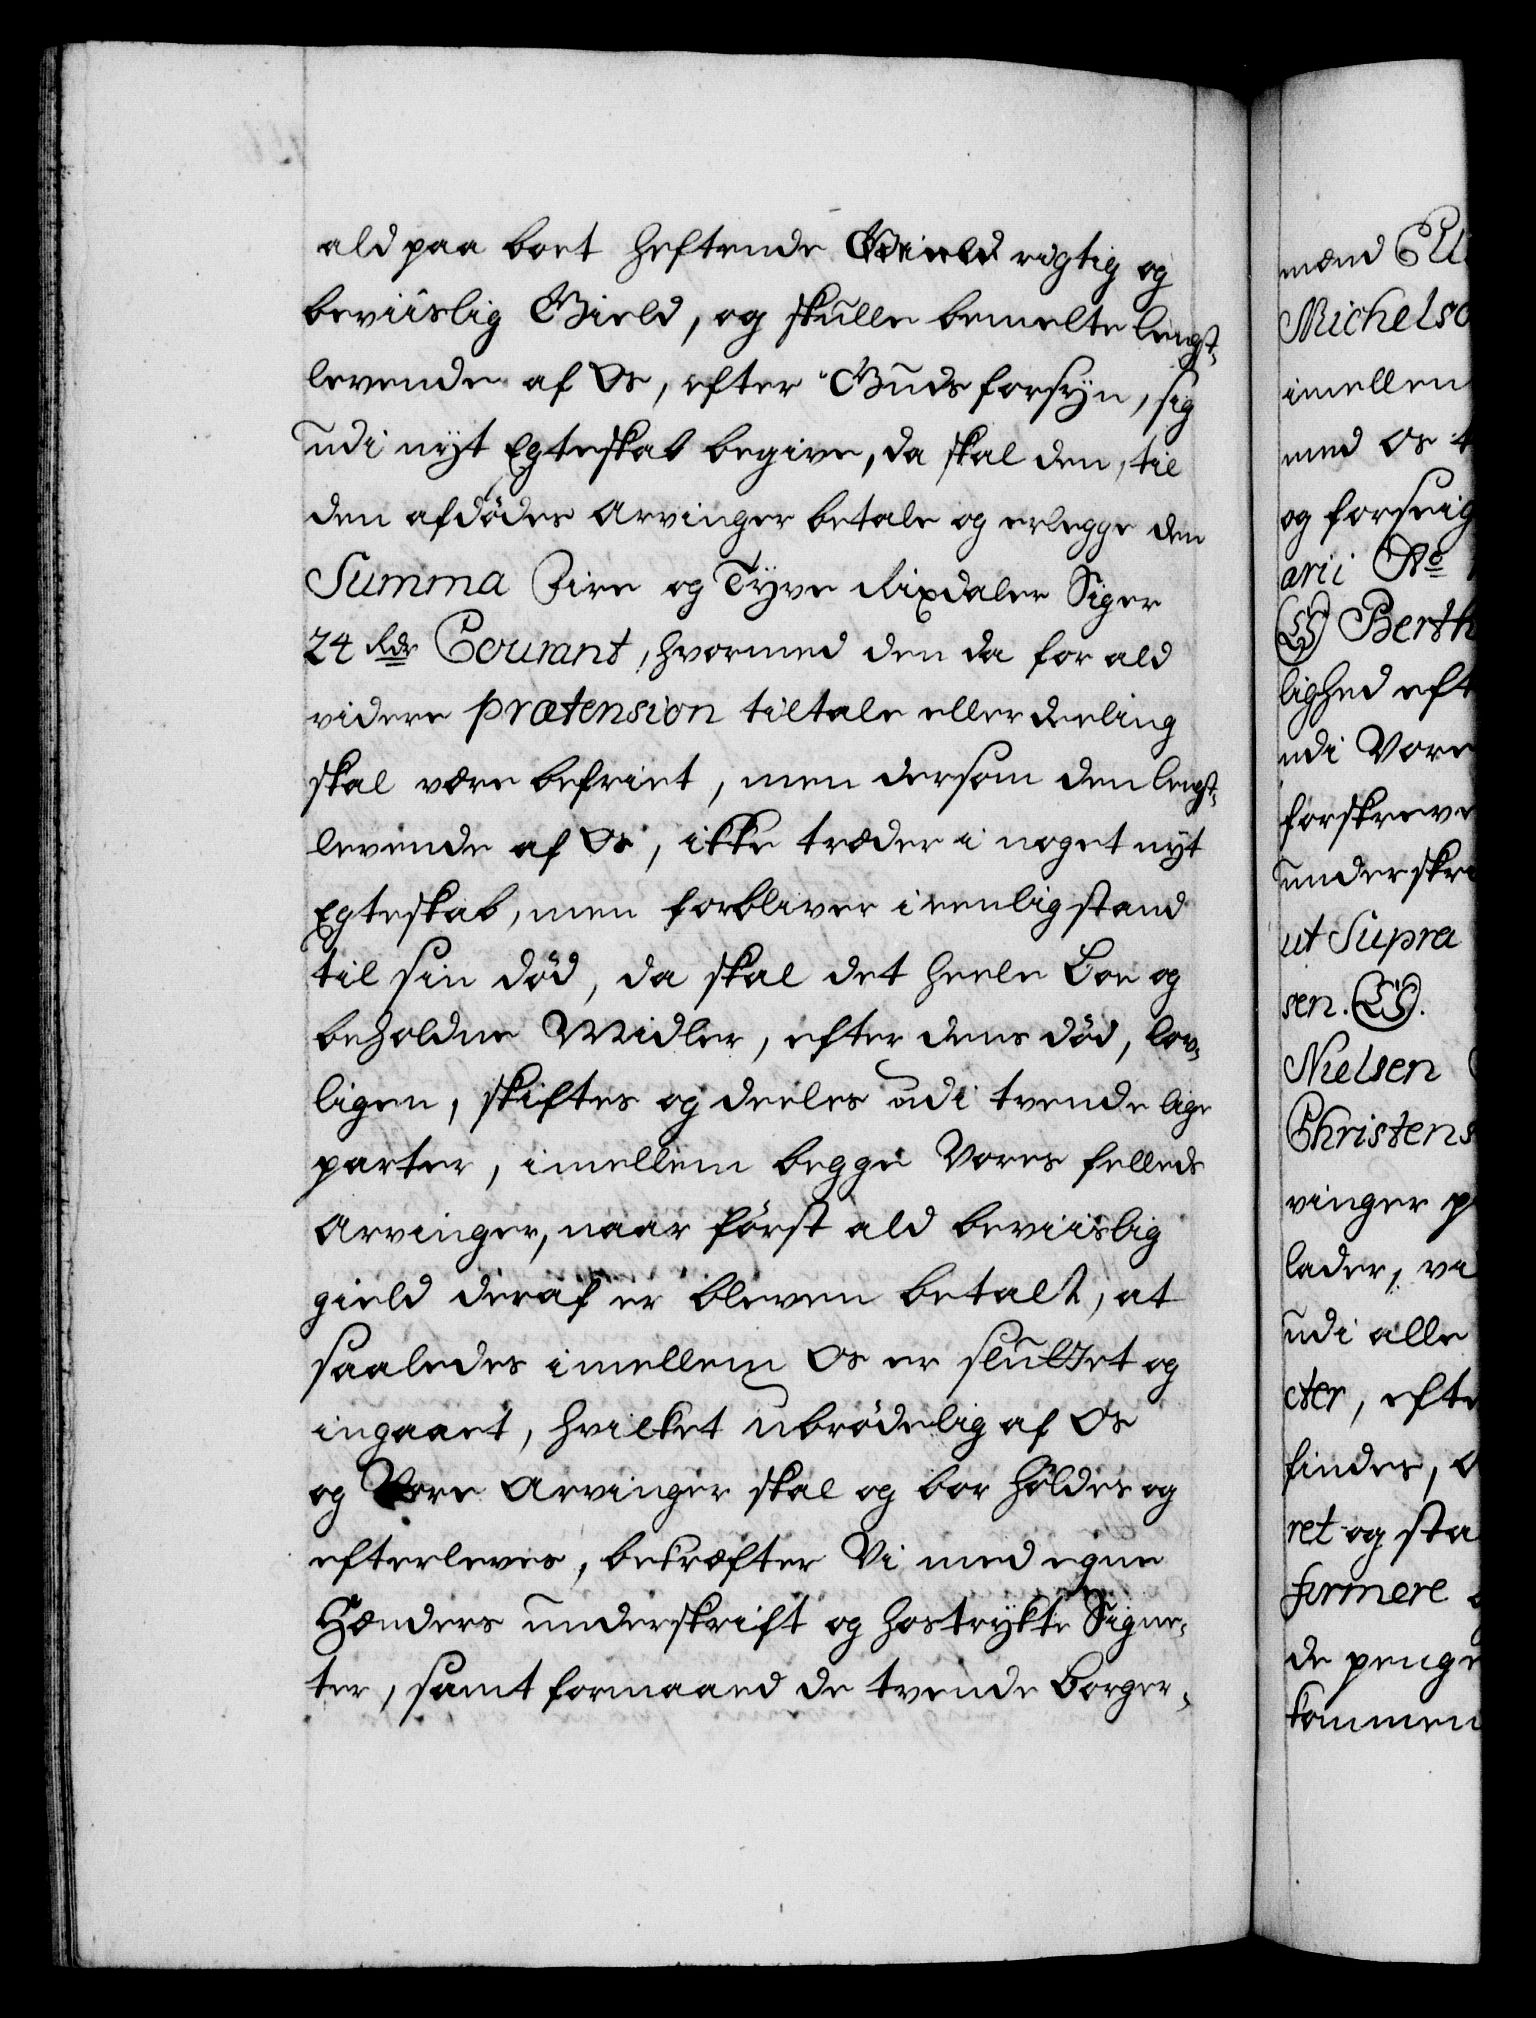 ald paa boet heftende Gield rigtig og
beviislig Gield, og skulle bemelte lengst-
levende af Os, efter Guds forsyn, sig
udi nyt Egteskab begive, da skal den, til
den afdødes Arvinger betale og erlegge den
Summa Fire og Tyve Rixdaler Siger
24 Rdr Courant, hvormed den da for ald
videre prætension tiltale eller deeling
skal være befriet, men dersom den lengst-
levende af Os, ikke træder i noget nyt
Egteskab, men forbliver i eenlig stand
til sin død, da skal det heele Boe og
beholdne Midler, efter dens død, lov-
ligen, skiftes og deeles udi tvende lige
parter, imellem begge Vores felleds
Arvinger, naar først ald beviislig
gield deraf er bleven betalt, at
saaledes imellem Os er sluttet og
ingaaet, hvilket ubrødelig af Os
og Vore Arvinger skal og bør holdes og
efterleves, bekræfter Vi med egne
Hænders underskrift og hostrykte Signe-
ter, samt formaaed de tvende Borger-
mænd
Michelso
imellem
med Os
og forseig
arii No
Berth
lighed eft
udi Vore
forskreve
underskre
ut Supra
sen.
Nielsen
Christens
vinger
lader, vi
udi alle
cter, efte
findes,
ret og sta
firmere
de penge
kommen